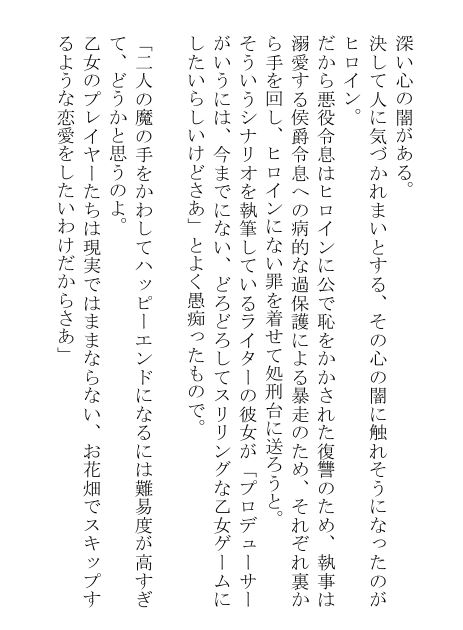 深い心の闇がある。
決して人に気づかれまいとする、その心の闇に触れそうになったのが
ヒロイン。
だから悪役令息はヒロインに公で恥をかかされた復讐のため、執事は
溺愛する侯爵令息への病的な過保護による暴走のため、それぞれ裏か
ら手を回し、ヒロインにない罪を着せて処刑台に送ろうと。
そういうシナリオを執筆しているライターの彼女が「プロデューサー
がいうには、今までにない、どろどろしてスリリングな乙女ゲームに
したいらしいけどさあ」とよく愚痴ったもので。
「二人の魔の手をかわしてハッピーエンドになるには難易度が高すぎ
て、どうかと思うのよ。
乙女のプレイヤーたちは現実ではままならない、お花畑でスキップす
るような恋愛をしたいわけだからさあ」